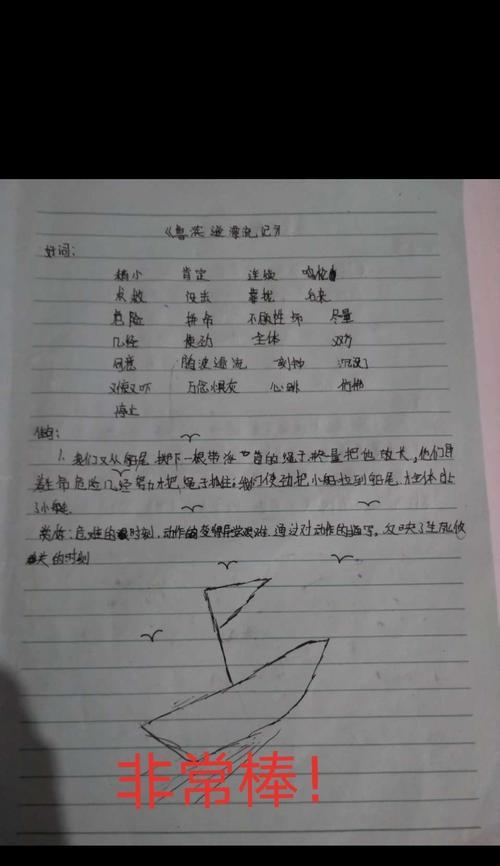 《鲁滨逊漂流记》
好词:
稍小 肯定 连续
求救 没法 靠拢
危险 拼命 不顾性 尽量
几经 使劲 主体 双方
同意 随波逐流 刻钟 沉没了
又惊又吓 万念惧灰 心跳
停止
佳句:
1. 我们又从船尾 抛下一根带浮 的绳子,尽量把他放长,他们冒
着生命危险几经努力才把 绳子抓住;我们使劲把小船拉到船尾
了小艇.
赏析:危难的 时刻,动作的变得异常艰难,通过对动作的描写,反映了生死攸
关的时刻
非常棒!